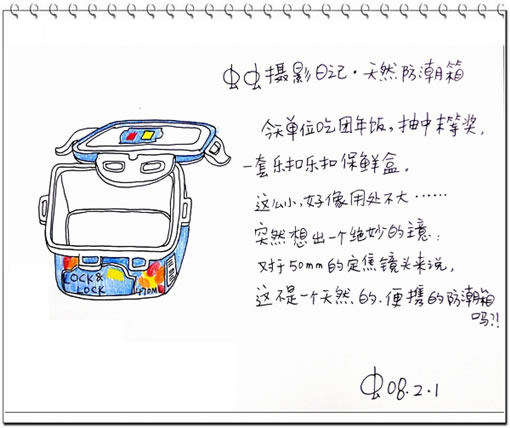 虫虫摄影日记·天然防潮箱
今天单位吃团年饭,抽中末等奖,
一套乐扣乐扣保鲜盒。
这么小,好像用处不大……
突然想出一个绝妙的主意:
对于50mm的定焦镜头来说,
这不是一个天然的、便携的防潮箱
吗?!
LOCK&
LOCK
470ML
虫08.2.1